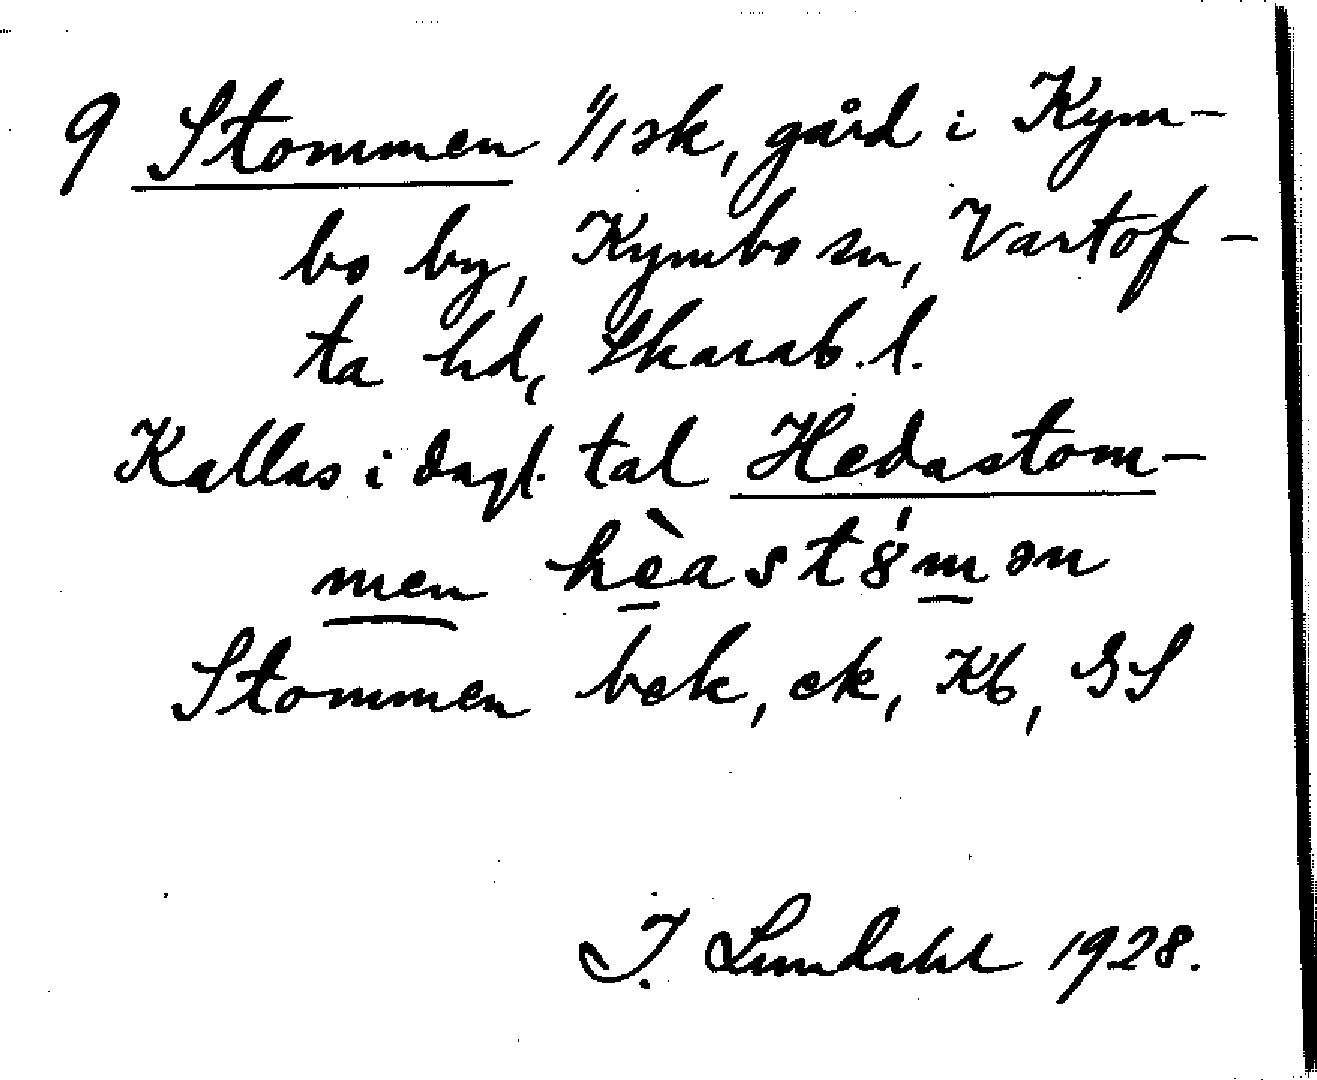 9 Stommen 1/1 sk, gård i Kym-
bo by, Kymbo sn, Vartof-
ta hd, Skarab. l.
Kallas i dagl. tal Hedastom-
men hèast8́mən
Stommen bek, ek, Kb, GS
I. Lundahl 1928.